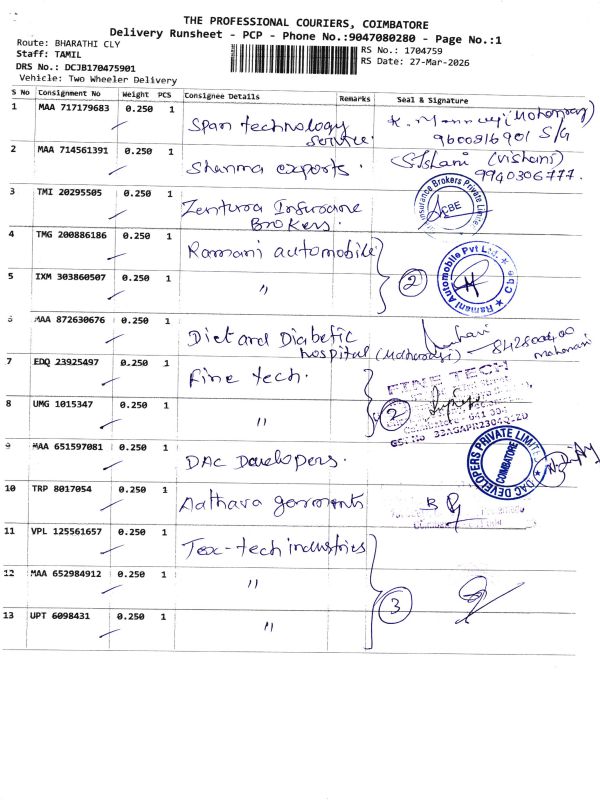 THE PROFESSIONAL COURIERS, COIMBATORE
Delivery Runsheet - PCP - Phone No.:9047080280 - Page No.:1
Route: BHARATHI CLY
RS No.: 1704759
Staff: TAMIL
RS Date: 27-Mar-2026
DRS No.: DCJB170475901
Vehicle: Two Wheeler Delivery
S No Consignment No Weight PCS Consignee Details Remarks Seal & Signature
1 MAA 717179683 0.250 1 Span technology service. (Mohanraj)
9600916901 S/G
2 MAA 714561391 0.250 1 Sharma exports. (Vishani)
9940306777.
3 TMI 20295505 0.250 1 Zentura Insurane Brokers. Insurance Brokers Private Limited CBE
4 TMG 200886186 0.250 1 Ramani automobile
5 IXM 303860507 0.250 1 " 2 Ramani Automobile Pvt Ltd. Cbe
6 MAA 872630676 0.250 1 Diet and Diabetic hospital
mohanari
7 EDQ 23925497 0.250 1 Fine tech. FINE TECH
8 UMG 1015347 0.250 1 " 2
9 MAA 651597081 0.250 1 DAC Developers. DAC DEVELOPERS PRIVATE LIMITED COIMBATORE
10 TRP 8017054 0.250 1 Aathava garments
11 VPL 125561657 0.250 1 Tex-tech industries
12 MAA 652984912 0.250 1 "
3
13 UPT 6098431 0.250 1 "